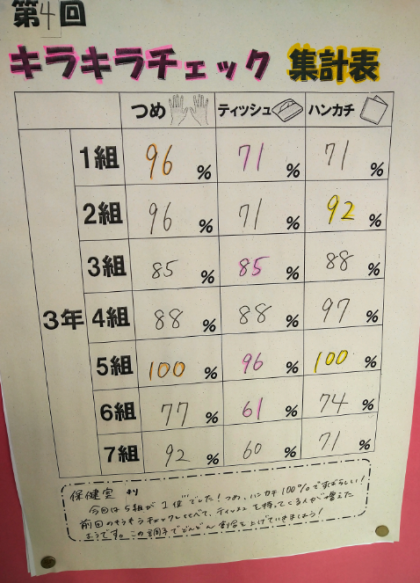 第4回
キラキラチェック 集計表
つめ ティッシュ ハンカチ
3年
1組 96% 71% 71%
2組 96% 71% 92%
3組 85% 85% 88%
4組 88% 88% 97%
5組 100% 96% 100%
6組 77% 61% 74%
7組 92% 60% 71%
保健室 より
今回は5組が1位でした!つめ、ハンカチ100%ですばらしい!
前回のキラキラチェックとくらべて、ティッシュを持ってくる人が増えた
ようです。この調子でどんどん を上げていきましょう!